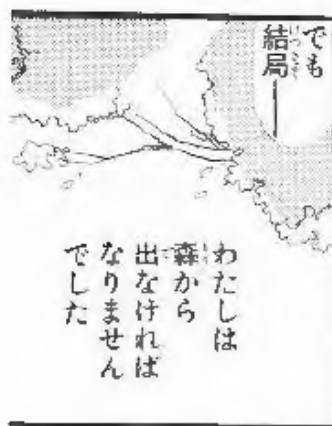 でも
結局――
わたしは
森から
出なければ
なりません
でした